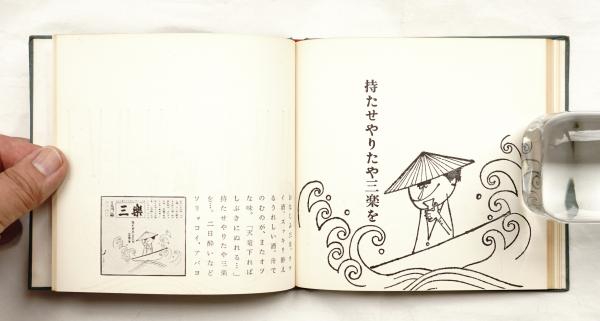 持たせやりたや三楽を
イ酒。スッキリ酔え
るうれしい酒。舟で
のむのが、またオツ
な味。「天竜下れば
しぶきにぬれる…」
持たせやりたや三楽
を…。二日酔いなど
ソリャコイ、アバヨ
三楽